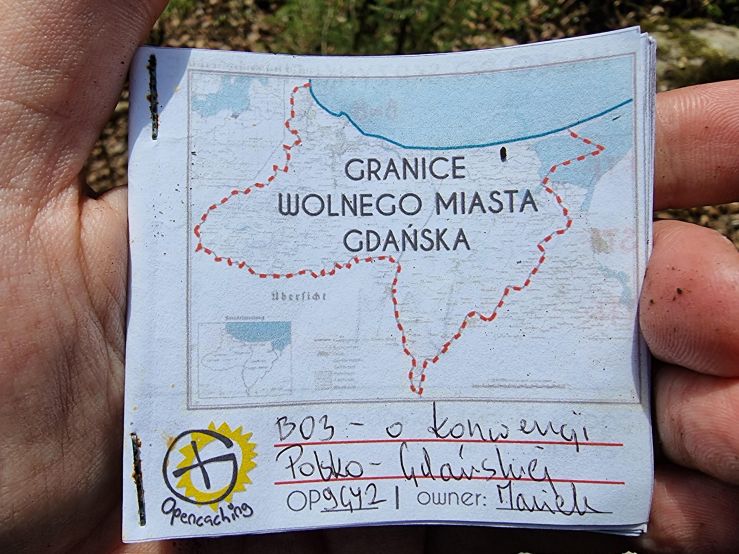 GRANICE
WOLNEGO MIASTA
GDAŃSKA
Übersicht
B03 - o konwencji
Polsko - Gdańskiej
OP9GY2 | owner: Maniek
Opencaching